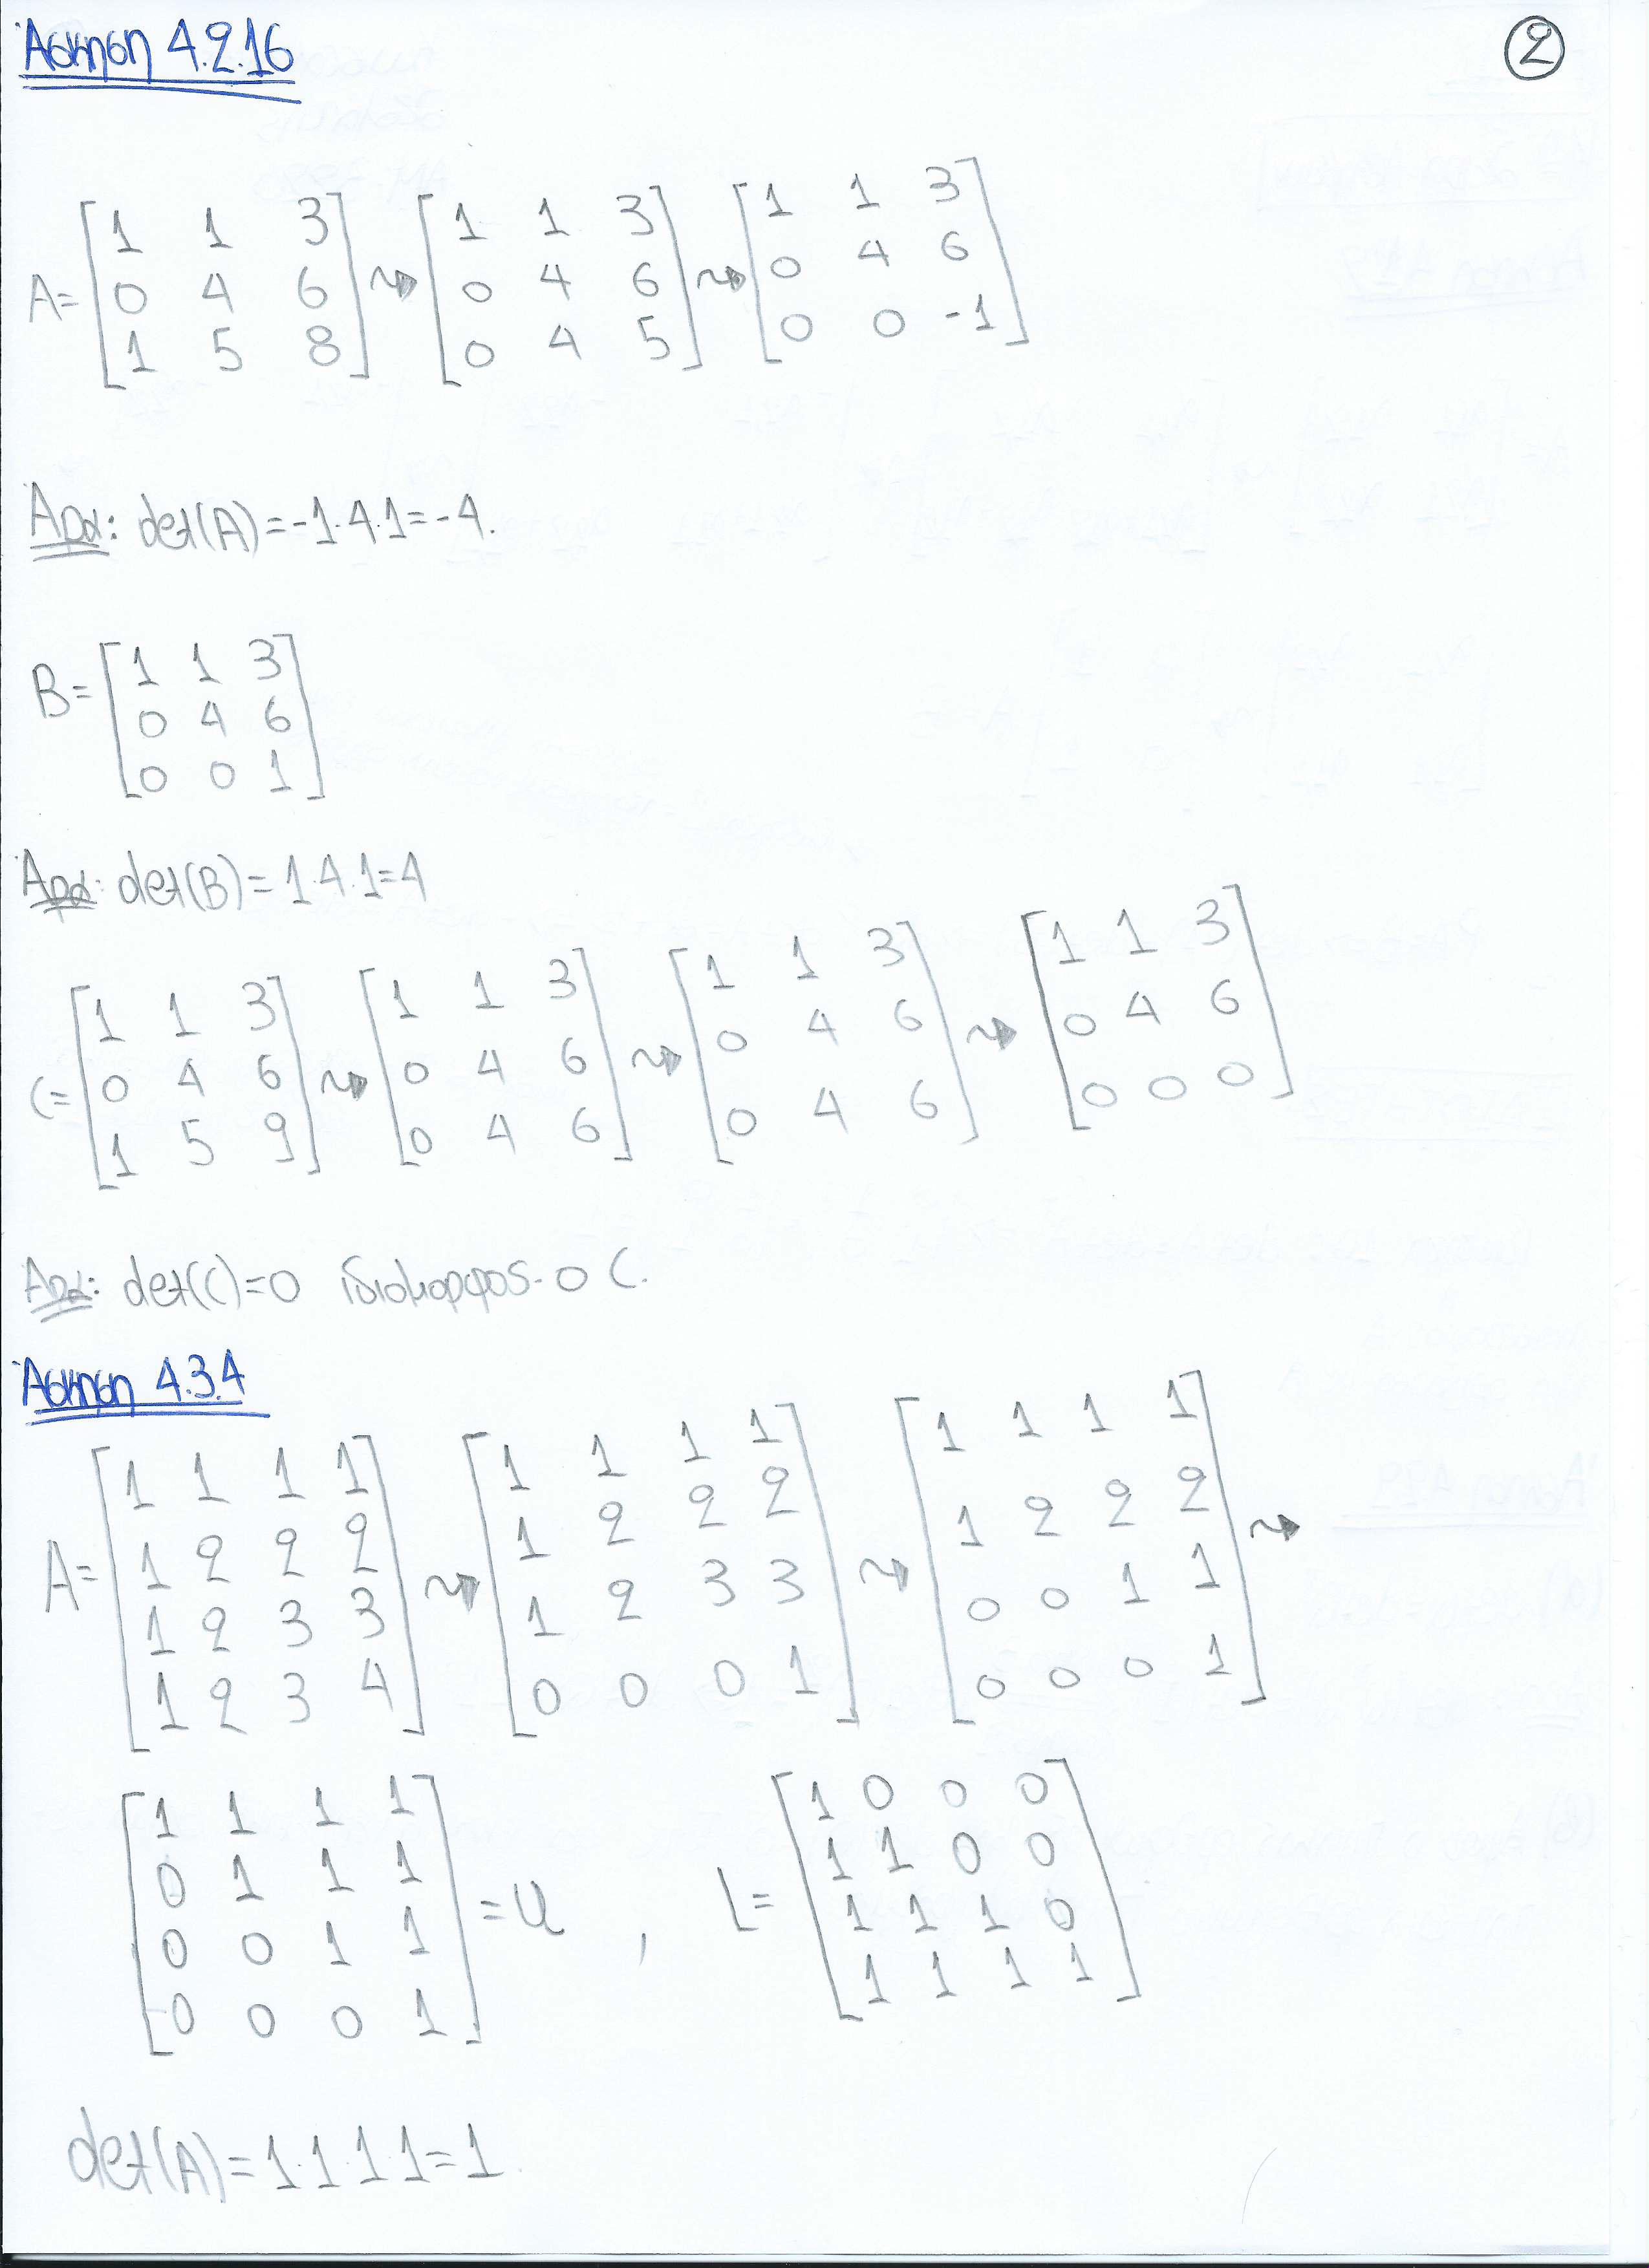 Άσκηση 4.2.16
2
A= [1 1 3; 0 4 6; 1 5 8] ⇝ [1 1 3; 0 4 6; 0 4 5] ⇝ [1 1 3; 0 4 6; 0 0 -1]
Άρα: det(A)=-1·4·1=-4.
B= [1 1 3; 0 4 6; 0 0 1]
Άρα: det(B)=1·4·1=4
C= [1 1 3; 0 4 6; 1 5 9] ⇝ [1 1 3; 0 4 6; 0 4 6] ⇝ [1 1 3; 0 4 6; 0 4 6] ⇝ [1 1 3; 0 4 6; 0 0 0]
Άρα: det(C)=0 ιδιόμορφος ο C.
Άσκηση 4.3.4
A= [1 1 1 1; 1 2 2 2; 1 2 3 3; 1 2 3 4] ⇝ [1 1 1 1; 1 2 2 2; 1 2 3 3; 0 0 0 1] ⇝ [1 1 1 1; 1 2 2 2; 0 0 1 1; 0 0 0 1] ⇝
[1 1 1 1; 0 1 1 1; 0 0 1 1; 0 0 0 1] =U , L= [1 0 0 0; 1 1 0 0; 1 1 1 0; 1 1 1 1]
det(A)=1·1·1·1=1